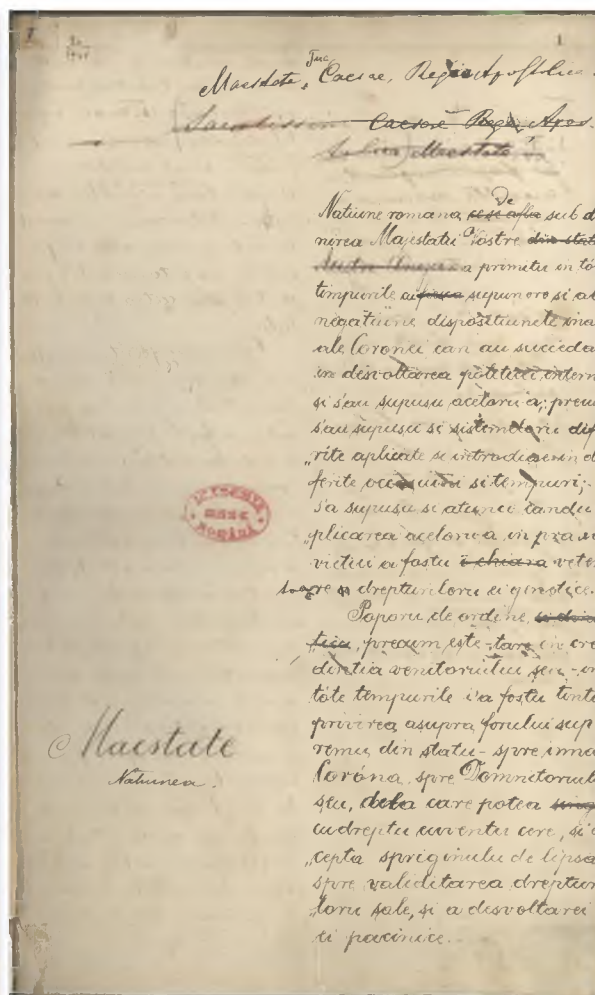 1
Maestate, Caesae, Regia Apostolica
Caesare Rege Apos
Maestate
Natiune romana De sub d
nirea Majestatii Vostre din stat
a primitu in to
timpurile supunere si ab
negatiune dispositiunile ina
ale Coronei can au succeda
in desvoltarea politicei intern
si s'au supusu acelor'a; precu
s'au supusu si sistemeloru dif
„rite aplicate si introduse in d
ferite si tempuri;
s'a supusu si atunci candu
„plicarea acelor'a in praxi
a fostu chiara vetem
drepturiloru ei genetice.
Poporu de ordine,
precum este tare in cre
dintia venitoriului seu - in
tote tempurile i'a fostu tinta
privirea asupra forului sup
remu din statu - spre inna
Coróna, spre Domnitoriul
seu, dela care potea
cu dreptu cuventu cere, si a
„cepta spriginulu de lipsa
spre validitarea dreptur
„loru sale, si a desvoltarei
ei pacinice.
Maestate
Natiunea.
ACADEMIA
ROMÂNĂ